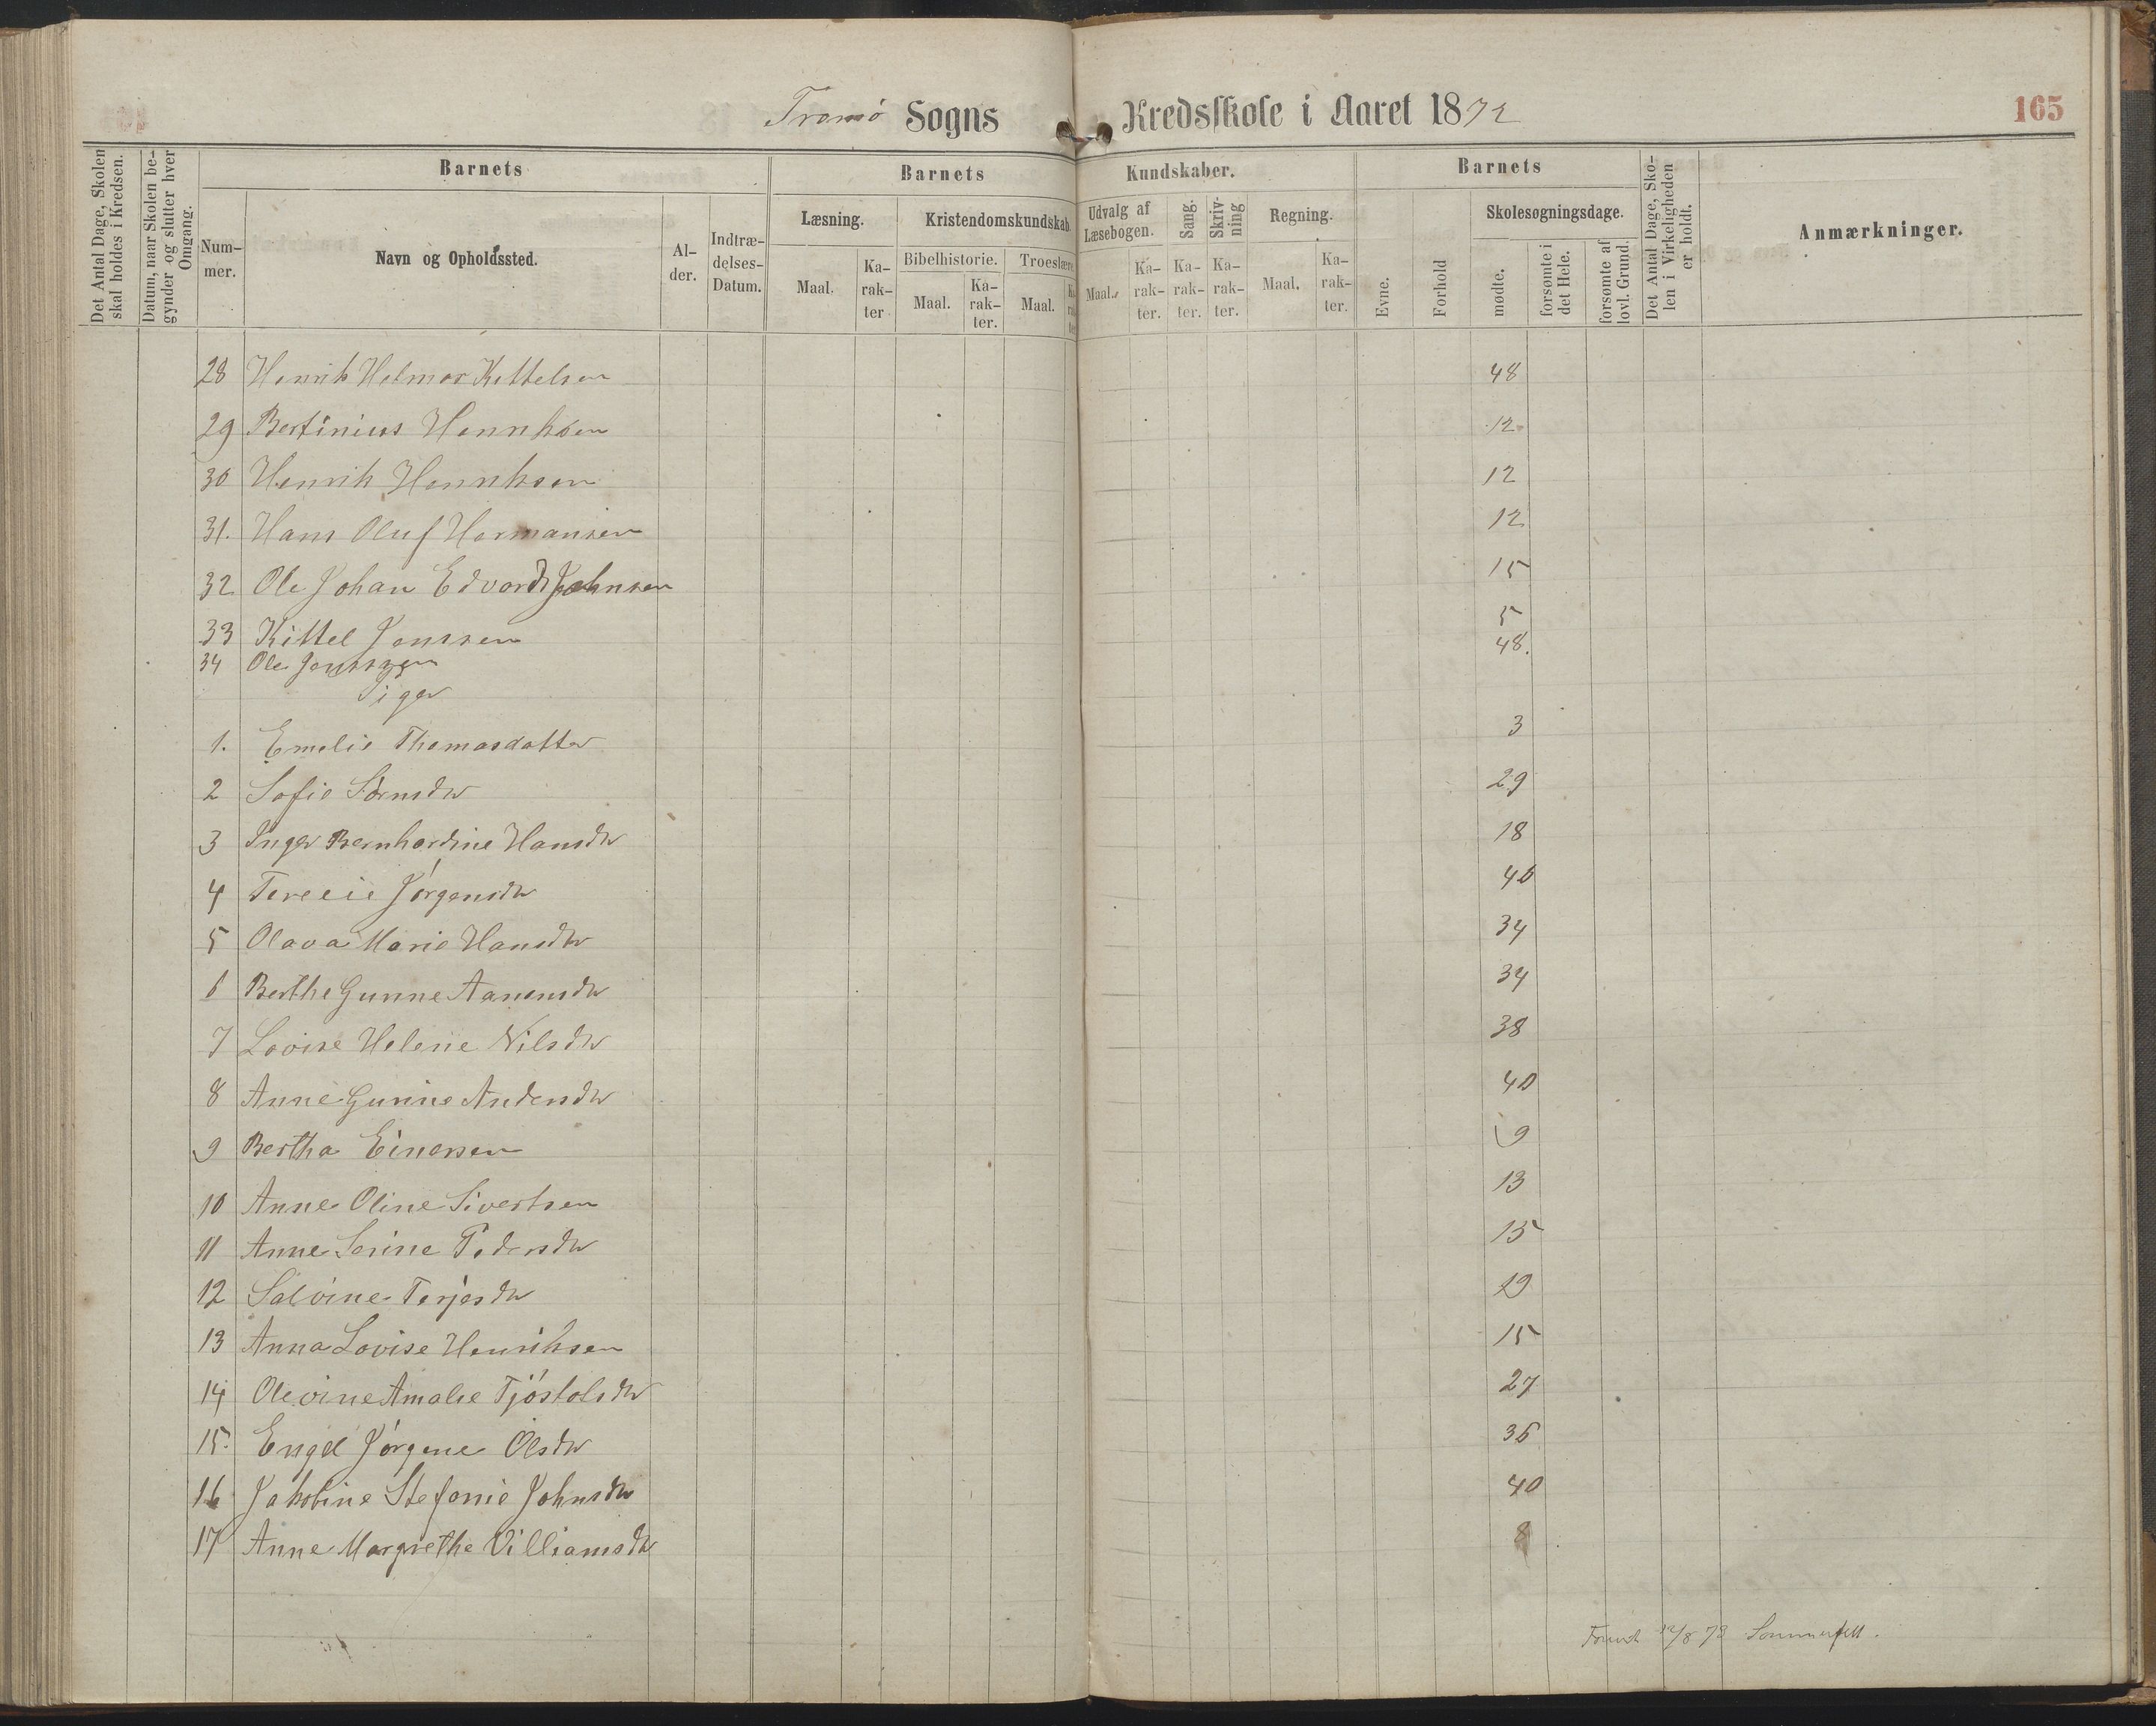 Tromø Sogns Kredsskole i Aaret 1872
165
Det Antal Dage, Skolen skal holdes i Kredsen.
Datum, naar Skolen begynder og slutter hver Omgang.
Barnets
Num-
mer.
Navn og Opholdssted.
Al-
der.
Indtræ-
delses-
Datum.
Barnets Kundskaber.
Læsning.
Maal.
Ka-
rak-
ter
Kristendomskundskab.
Bibelhistorie.
Maal.
Ka-
rak-
ter.
Troeslære.
Maal.
Udvalg af
Læsebogen.
Maal.
Ka-
rak-
ter.
Sang.
Ka-
rak-
ter.
Skriv-
ning
Ka-
rak-
ter.
Regning.
Maal.
Ka-
rak-
ter.
Barnets
Evne.
Forhold
Skolesøgningsdage.
mødte.
forsømte i
det Hele.
forsømte af
lovl. Grund.
Det Antal Dage, Sko-
len i Virkeligheden
er holdt.
Anmærkninger.
28 Henrik Helmer Kittelsen 48
29 Bertinius Henriksen 12
30 Henrik Henriksen 12
31. Hans Oluf Hermansen 12
32 Ole Johan Edvard Johnsen 15
33 Kittel Jenssen 5
34 Ole Jenssen 48.
Piger
1. Emelie Thomasdatter 3
2 Sofie Sørnsdtr 29
3 Inger Bernhardine Hansdtr 18
4 Terecie Jørgensdtr 40
5 Olava Marie Hansdtr 34
6 Berthe Gunne Aanensdtr 34
7 Lovise Helene Nilsdtr 38
8 Anne Gurine Andersdtr 40
9 Bertha Einersen 9
10 Anne Oline Sivertsen 13
11 Anne Serine Pedersdtr 15
12 Salvine Terjesdtr 19
13 Anna Lovise Henriksen 15
14 Olevine Amalie Tjøstolsdtr 27
15. Engel Jørgine Olsdtr 36
16 Jakobine Stefanie Johnsdtr 40
17 Anne Margrethe Villiamsdtr 8
12/8 73 Sommerfelt.